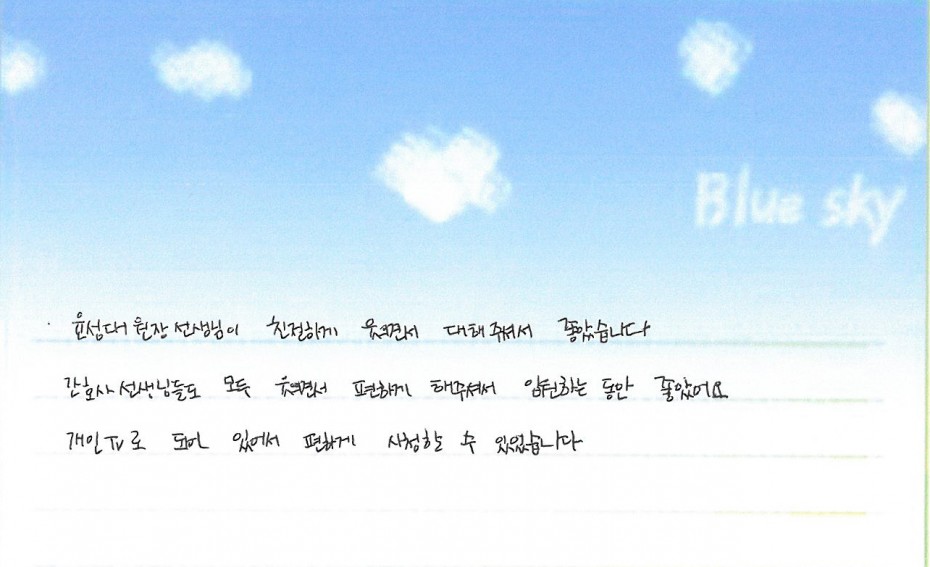 Blue sky
윤성대 원장 선생님이 친절하게 웃으면서 대해 주셔서 좋았습니다
간호사 선생님들도 모두 웃으면서 편하게 해주셔서 입원하는 동안 좋았어요
개인 TV로 되어 있어서 편하게 시청할 수 있었습니다